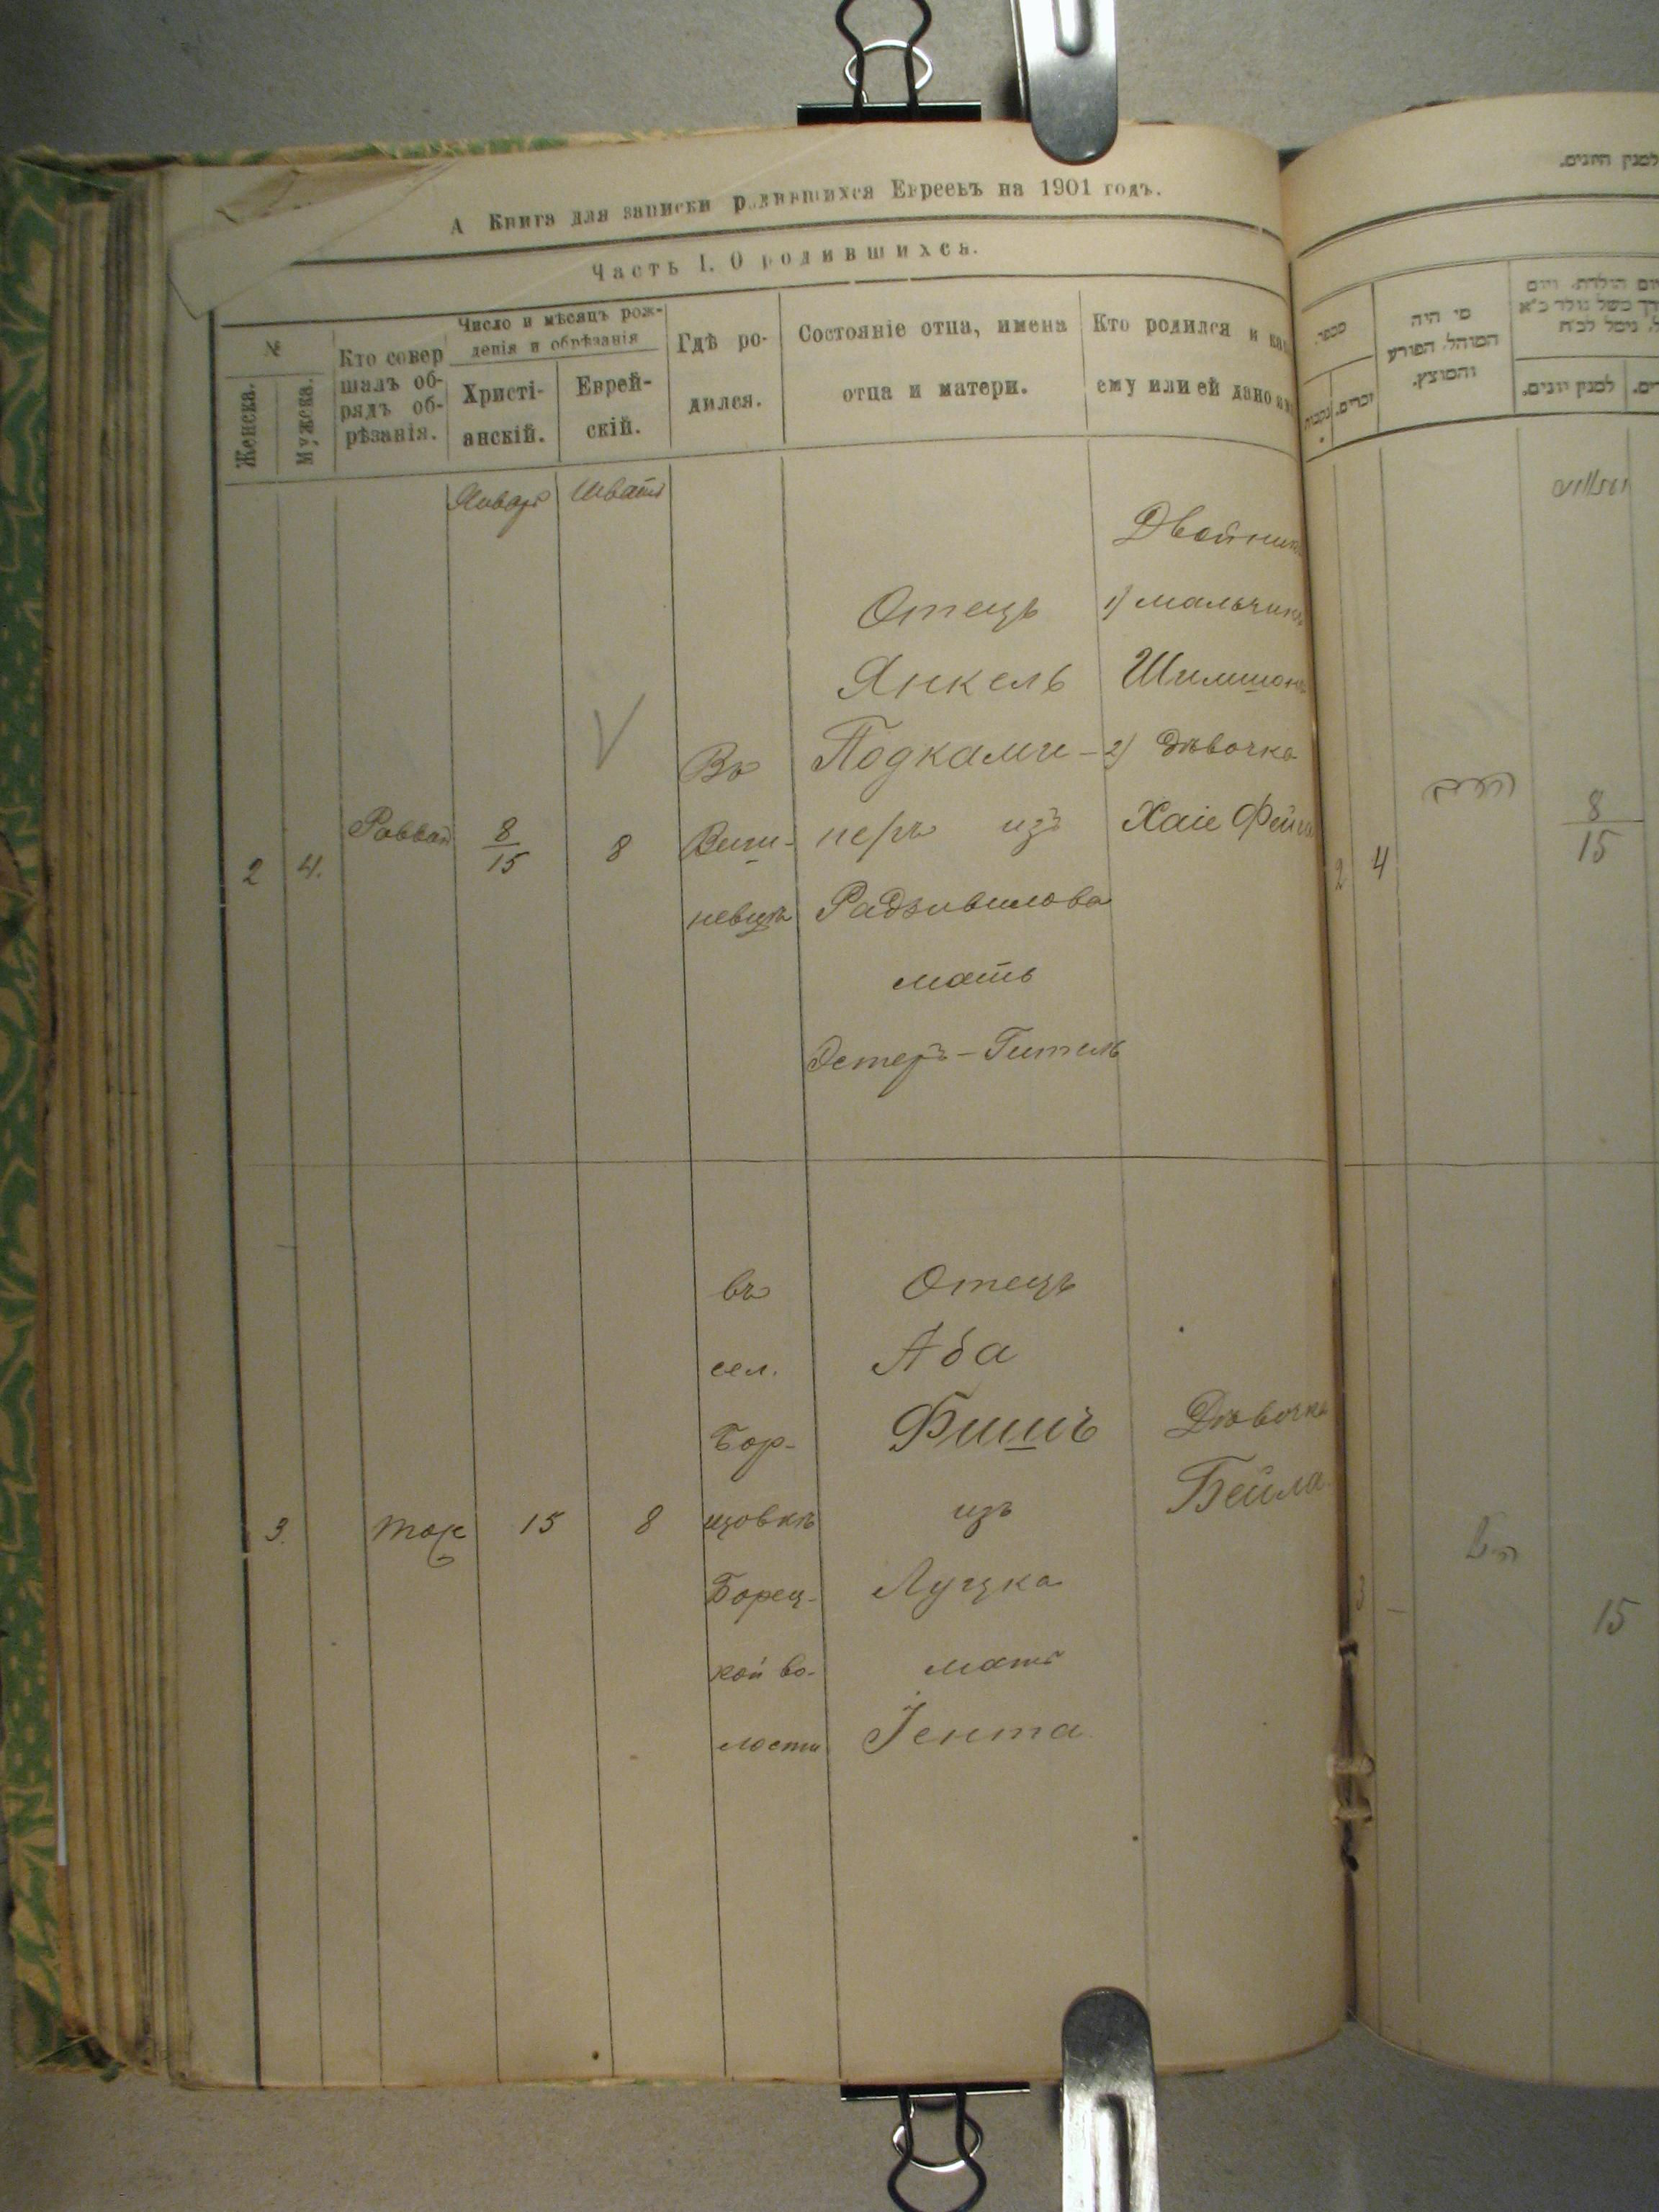 А Книга для записки родившихся Евреевъ на 1901 годъ.
Часть I. О родившихся.
№
Женска.
Мужска.
Кто совер
шалъ об-
рядъ об-
рѣзанія.
Число и мѣсяцъ рож-
денія и обрѣзанія
Христі-
анскій.
Еврей-
скій.
Гдѣ ро-
дился.
Состояніе отца, имена
отца и матери.
Кто родился и
ему или ей дано
Январь
Шватъ
2
4.
Раввин
8
15
8
Въ
Виш-
невцѣ
Отецъ
Янкель
Подками-
неръ изъ
Радзивилова
мать
Эстеръ-Гитель
Двойники
1) мальчикъ
Шимшонъ
2) дѣвочка
Хаіе Фейга
3.
тоже
15
8
въ
сел.
Бор-
щовкѣ
Борец-
кой во-
лости
Отецъ
Аба
Фишъ
изъ
Луцка
мать
Іента
Дѣвочка
Бейла
למנין היונים.
מספר
זכרים.
נקבות
מי היה
המוהל, הפורע
והמוצץ.
יום הולדת, ויום
למנין יונים.
2
4
8
15
3
15